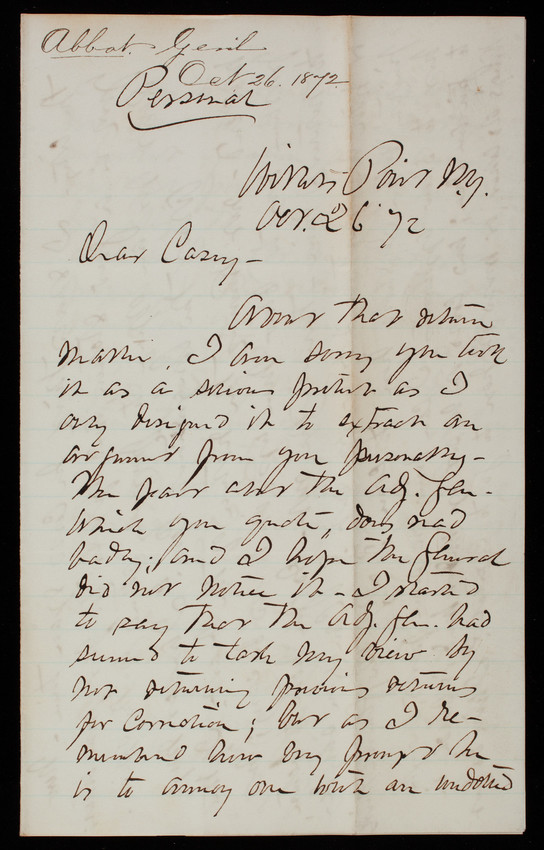 Abbot. Genl
Oct 26. 1872
Personal
Willets Point N.Y.
Oct. 26 72
Dear Casey -
About that return
matter, I am sorry you took
it as a serious protest as I
only designed it to extract an
argument from you personally -
The part about the Adj. Gen.
which you quote, does read
badly; and I hope the General
did not notice it - I started
to say that the Adj. Gen. had
seemed to take my view by
not returning previous returns
for correction; but as I re-
membered how very prompt he
is to annoy one with an undotted